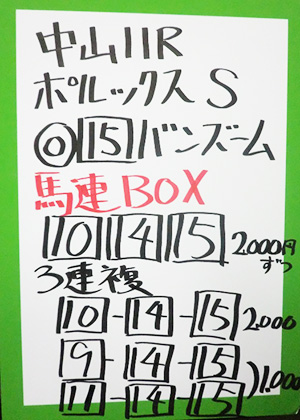 中山11R
ポルックスS
◎15バンズーム
馬連BOX
10 14 15 2,000円ずつ
3連複
10-14-15 2,000
9-14-15
11-14-15 )1,000